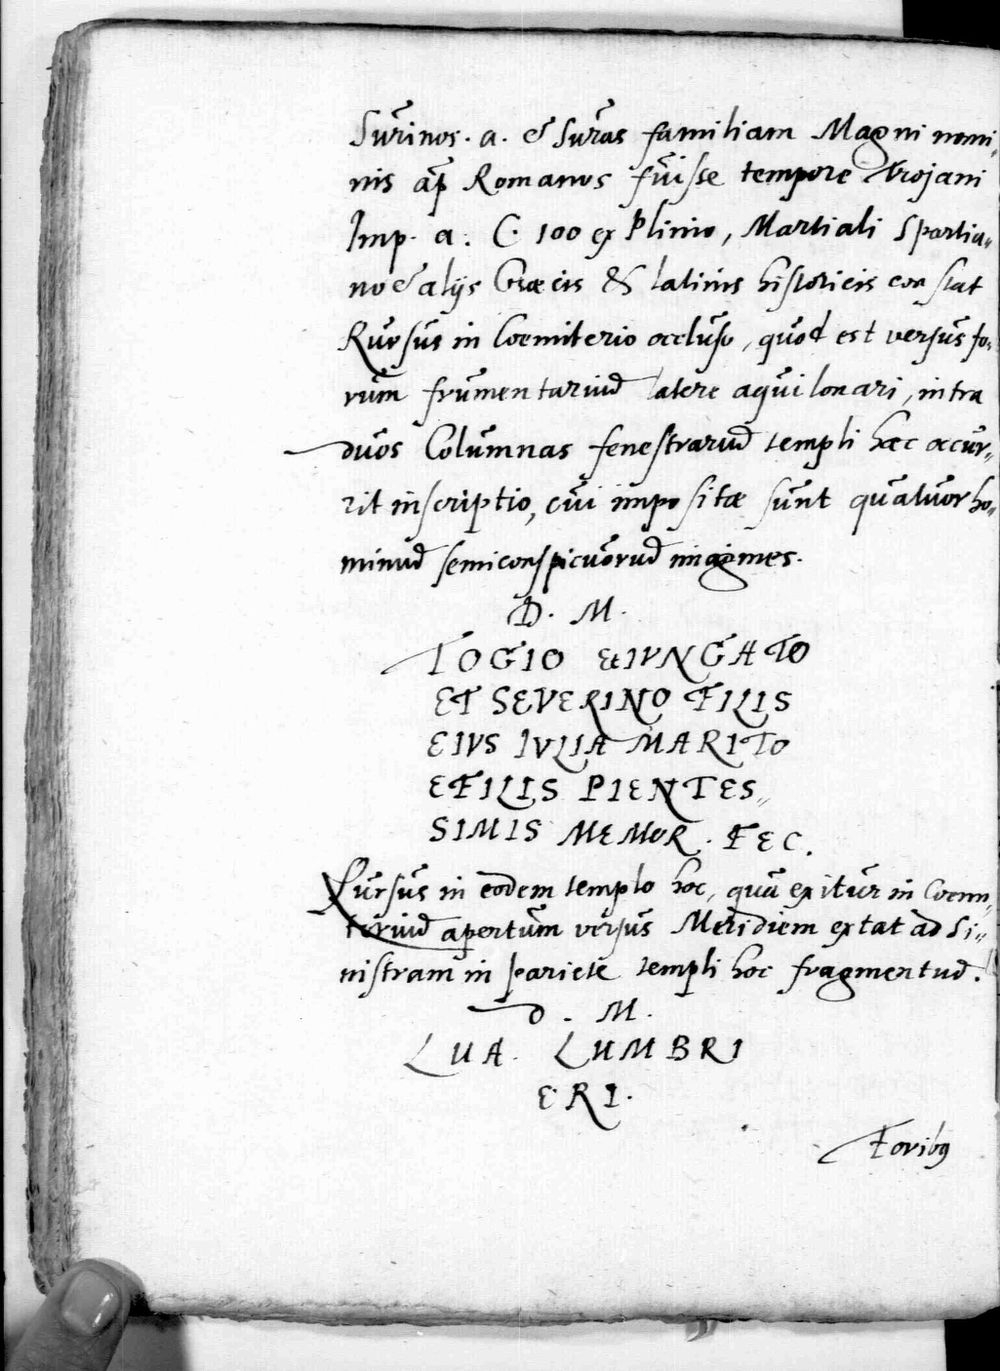 Surinos. a. & Suras familiam Magni nomi-
nis ap Romanos fuisse tempore Trojani
Imp. a. C. 100 ex Plinio, Martiali Spartia-
no & alijs Græcis & latinis historicis constat
Rursus in Coemiterio occluso, quod est versus fo-
rum frumentariũ latere aquilonari, intra
duos Columnas fenestrarũ templi hæc occur-
rit inscriptio, cui impositæ sunt quatuor ho-
minũ semiconspicuorũ imagines.
D. M.
TOGIO EIVNGATO
ET SEVERINO FILIS
EIVS IVLIA MARITO
EFILIS PIENTES-
SIMIS MEMOR. FEC.
Rursus in eodem templo hoc, qua exitur in Coemi-
teriũ apertum versus Meridiem extat ad si-
nistram in pariete templi hoc fragmentũ.
D. M.
LUA. LUMBRI
ERI.
Foribꝰ